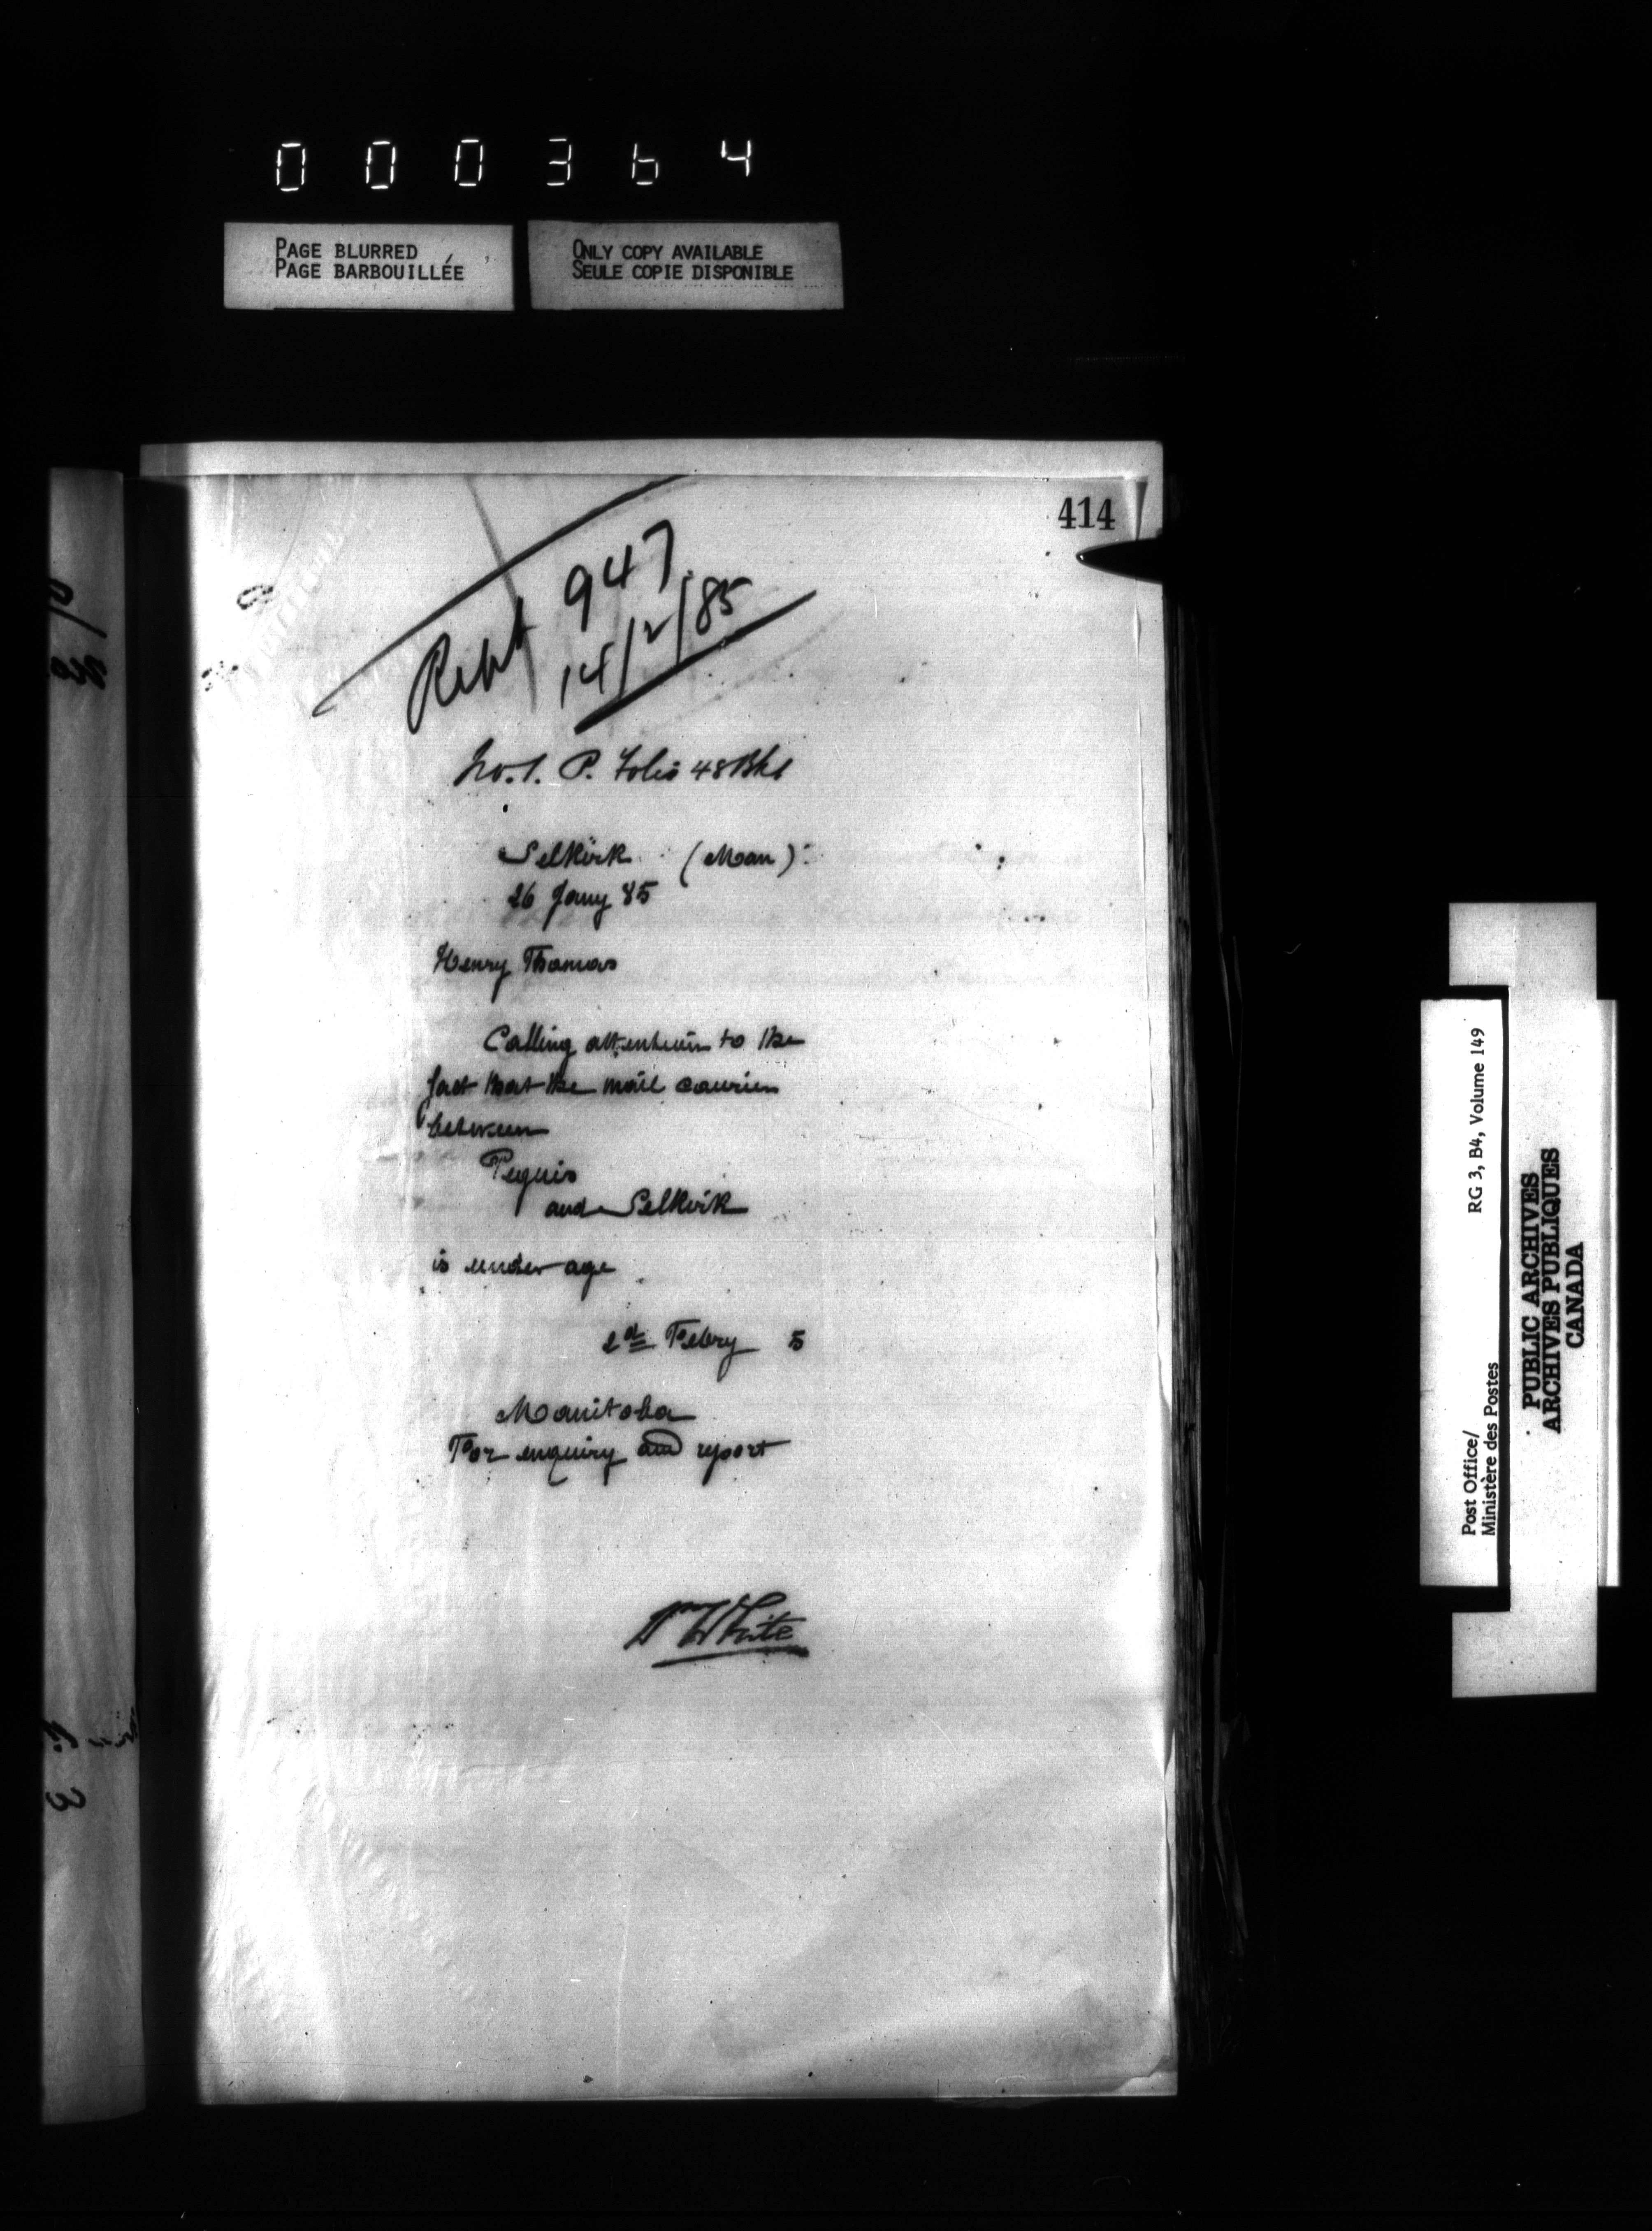 000364
PAGE BLURRED
PAGE BARBOUILLÉE
ONLY COPY AVAILABLE
SEULE COPIE DISPONIBLE
414
947
14/2/85
No. 1. P. Folio 48
Selkirk (Man)
26 Jany 85
Henry Thomas
Calling attention to the
fact that the mail courier
between
Peguis
and Selkirk
is under age
2d Febry 5
Manitoba
For enquiry and report
White
Post Office/
Ministère des Postes
RG 3, B4, Volume 149
PUBLIC ARCHIVES
ARCHIVES PUBLIQUES
CANADA